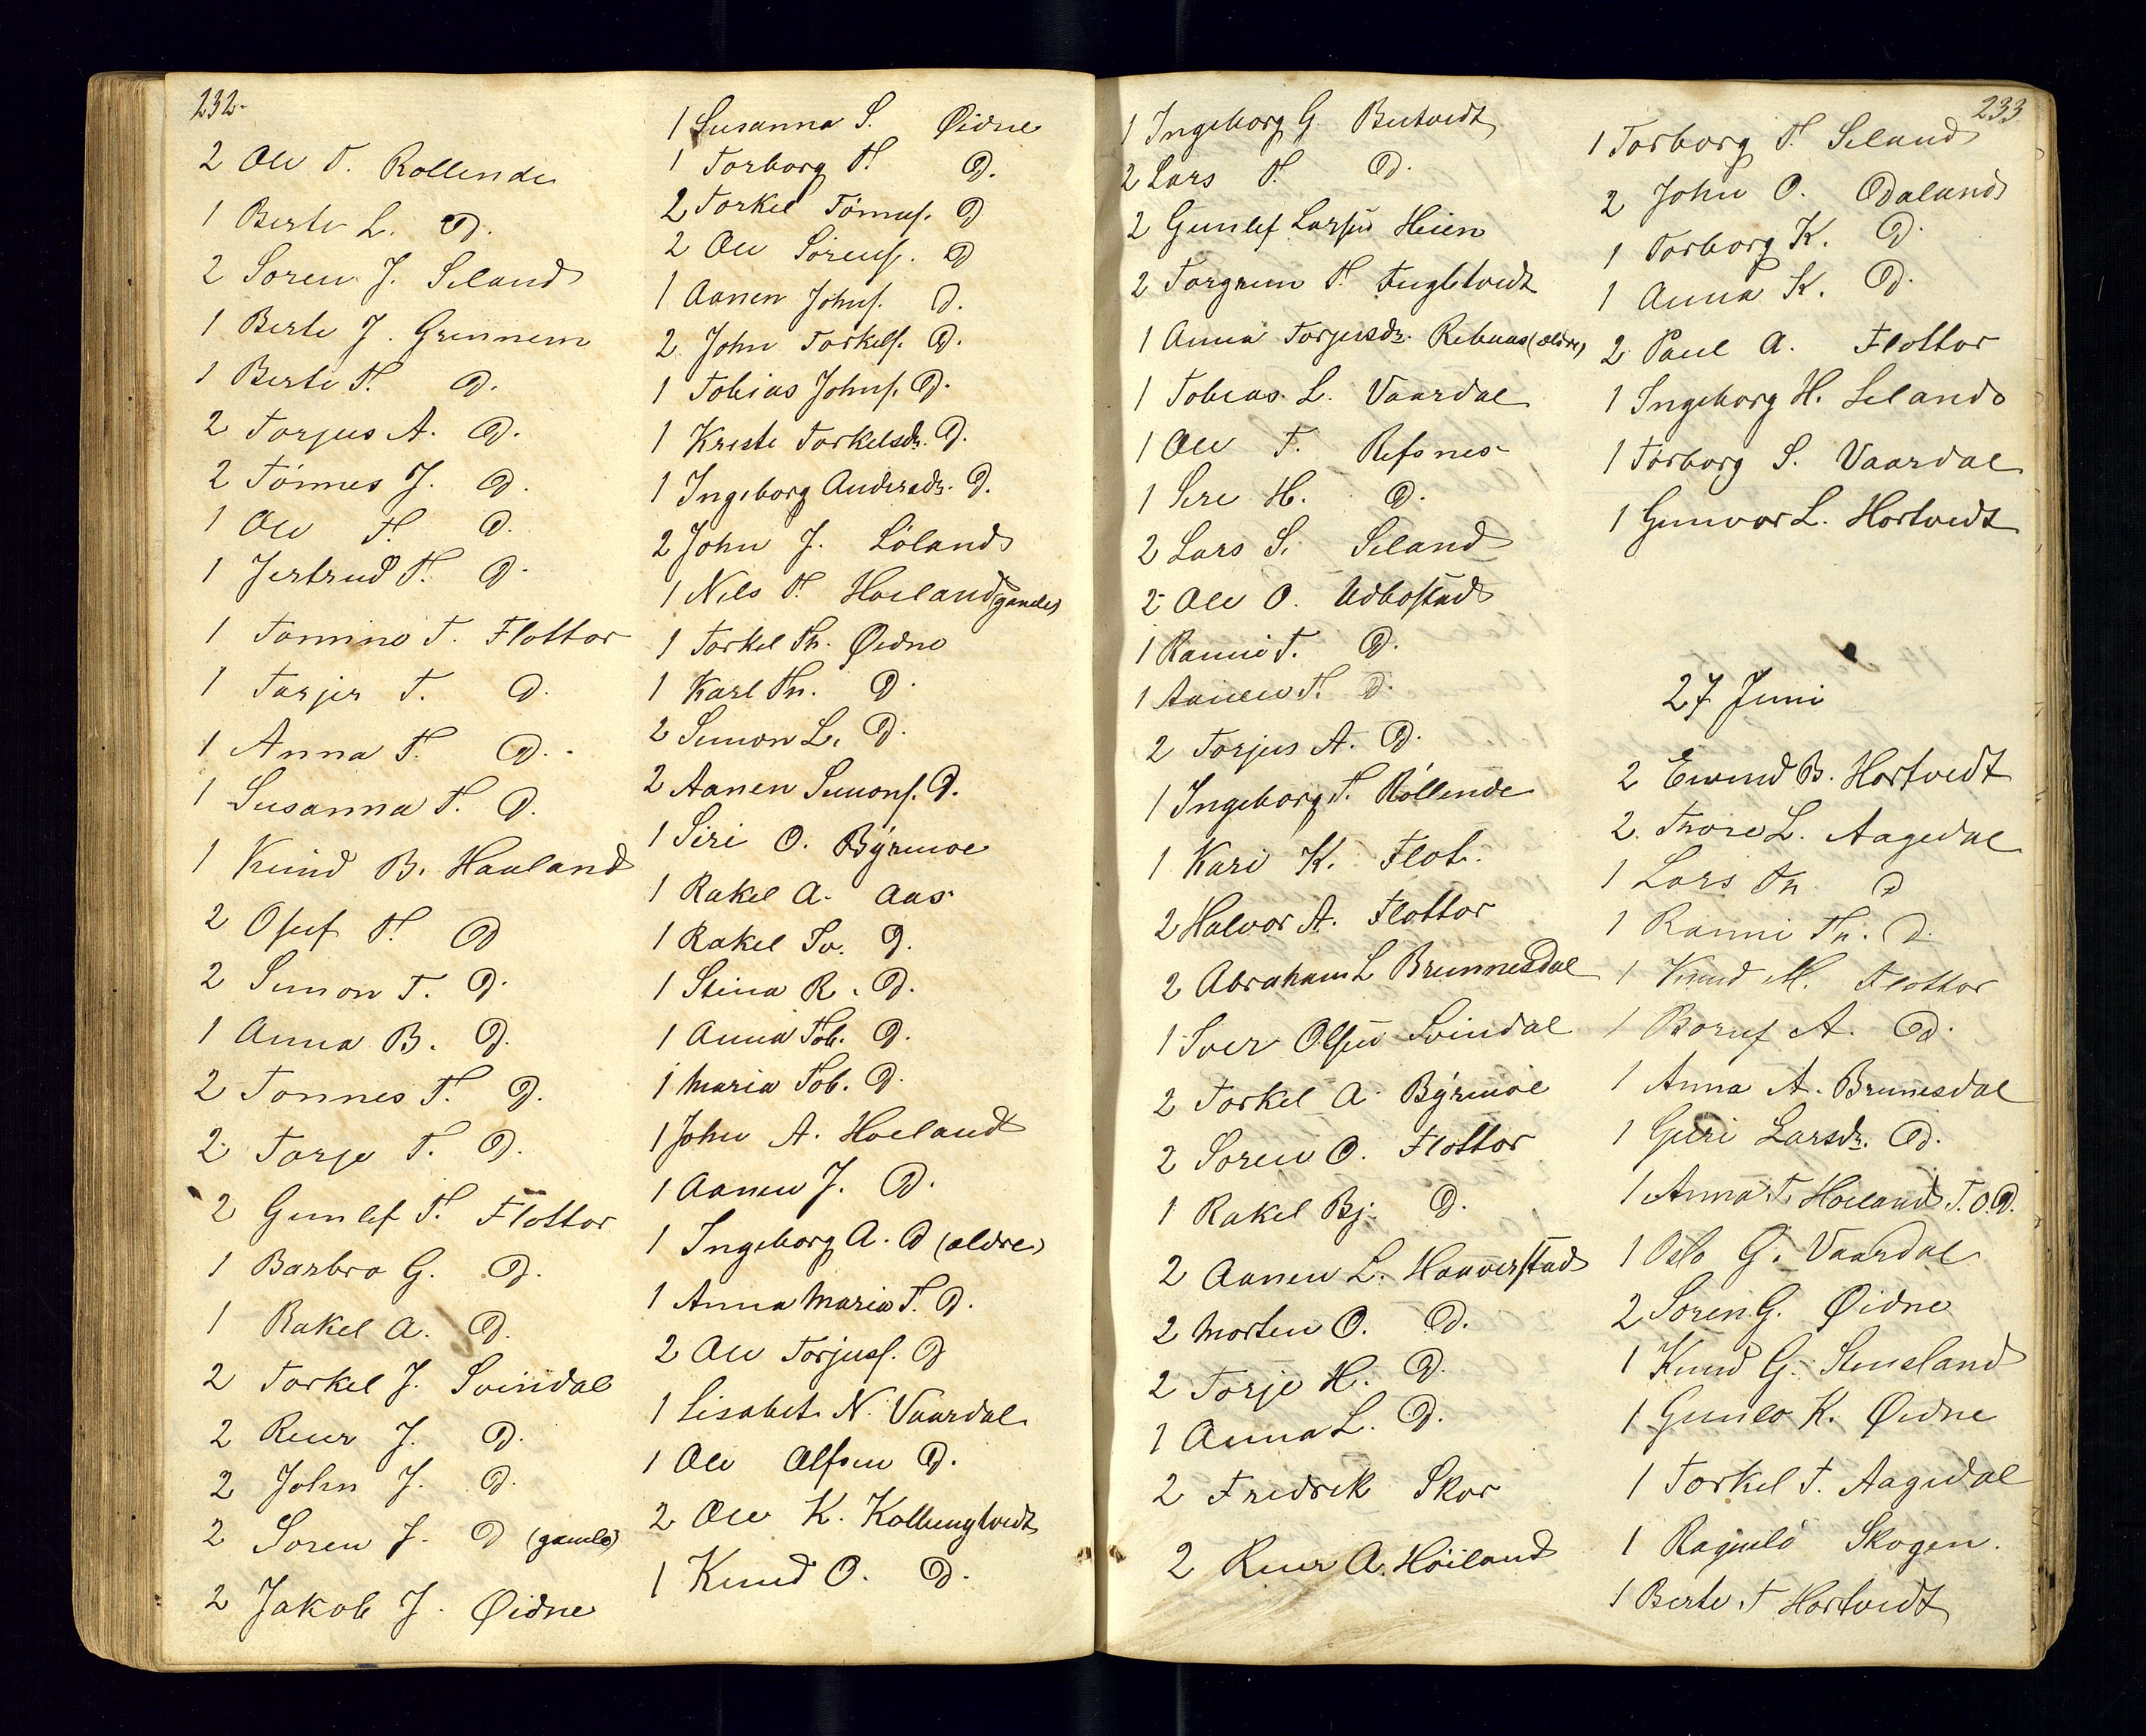 232.
2 Ole T. Rollende
1 Berte L. D.
2 Soren J. Seland
1 Berte J. Grennem
1 Berte T. D.
2 Torjus A. D.
2 Tönnes J. D.
1 Ole T. D.
1 Jertrud T. D.
1 Tomine T. Flottor
1 Tarjer T. D.
1 Anna T. D.
1 Susanna T. D.
1 Knud B. Haaland
2 Osuf T. D
2 Simon T. D.
1 Anna B. D.
2 Tonnes T. D.
2 Torje T. D.
2 Gunlef T. Flottor
1 Barbro G. D.
1 Rakel A. D.
2 Torkel J. Svindal
2 Reier J. D.
2 John J. D.
2 Soren J. D (gamle)
2 Jakob J. Øidne
1 Susanna S. Øidne
1 Torborg T. D.
2 Torkel Tönnesf. D
2 Ole Sörensf. D
1 Aanen Johnsf. D.
2 John Torkelsf. D.
1 Tobias Johnsf. D.
1 Kriste Torkelsdr. D.
1 Ingeborg Andersdr. D.
2 John J. Löland
1 Nils T. Hoeland (gamle)
1 Torkel Th. Øidne
1 Karl Th. D.
2 Simon L. D.
2 Aanen Simonsf. D.
1 Siri O. Býrmoe
1 Rakel A. Aas
1 Rakel Sv. D.
1 Stina R. D.
1 Anna Tob. D.
1 Maria Tob. D.
1 John A. Hoeland
1 Aanen J. D.
1 Ingeborg A. D (ældre)
1 Anna Maria T. D.
2 Ole Torjusf. D
1 Lisabet N. Vaardal
1 Ole Olfsen D.
2 Ole K. Kollungtvedt
1 Knud O. D.
233
1 Ingeborg G. Bustvedt
2 Lars T. D.
2 Gunlef Larsen Heien
2 Torgrim T. Fugletvedt
1 Anna Torjusdr. Rebnaas (ældre)
1 Tobias L. Vaardal
1 Ole T. Refsnes
1 Sire H. D.
2 Lars S. Seland
2 Ole O. Udbostad
1 Rannei T. D.
1 Aanen T. D.
2 Torjus A. D.
1 Ingeborg T. Röllende
1 Kari K. Flot.
2 Halvor A. Flottor
2 Abraham L Brunnesdal
1 Siver Olsen Svindal
2 Torkel A. Býrmoe
2 Soren O. Flottor
1 Rakel Bj. D.
2 Aanen L. Haaverstad
2 Morten O. D.
2 Torje H. D.
1 Anna L. D.
2 Fredrik Skor
2 Reier A. Höiland
1 Torborg T. Seland
2 John O. Odaland
1 Torborg K. D.
1 Anna K. D.
2 Paul A. Flottor
1 Ingeborg H. Seland
1 Torborg S. Vaardal
1 Gunvor L. Hortvedt
27 Juni
2 Eivind B. Hortvedt
2. Thore L. Aagedal
1 Lars Th. D
1 Ranni Th. D.
1 Knud M. Flottor
1 Boruf A. D.
1 Anna A. Brunnesdal
1 Guri Larsdr. D.
1 Anna T. Hoeland T.O.D.
1 Oslo G. Vaardal
2 Soren G. Øidne
1 Knud G. Stensland
1 Gunlo K. Øidne
1 Torkel T. Aagedal
1 Ragnild Skogen.
1 Berte T Hortvedt